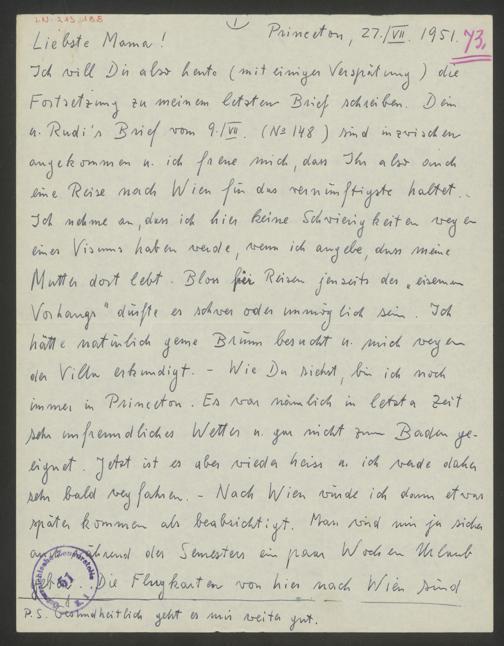 LN-213,188
1
Princeton, 27./VII. 1951.
73,
Liebste Mama!
Ich will Dir also heute (mit einiger Verspätung) die
Fortsetzung zu meinem letzten Brief schreiben. Dein
u. Rudi's Brief vom 9./VII. (No 148) sind inzwischen
angekommen u. ich freue mich, dass Ihr also auch
eine Reise nach Wien für das vernünftigste haltet.
Ich nehme an, dass ich hier keine Schwierigkeiten wegen
eines Visums haben werde, wenn ich angebe, dass meine
Mutter dort lebt. Bloss für Reisen jenseits des „eisernen
Vorhangs" dürfte es schwer oder unmöglich sein. Ich
hätte natürlich gerne Brünn besucht u. mich wegen
der Villa erkundigt. - Wie Du siehst, bin ich noch
immer in Princeton. Es war nämlich in letzter Zeit
sehr unfreundliches Wetter u. gar nicht zum Baden ge-
eignet. Jetzt ist es aber wieder heiss u. ich werde daher
sehr bald wegfahren. - Nach Wien würde ich dann etwas
später kommen als beabsichtigt. Man wird mir ja sicher
auch während des Semesters ein paar Wochen Urlaub
geben. Die Flugkarten von hier nach Wien sind
P.S. Gesundheitlich geht es mir weiter gut.
Österreichische Zensurstelle